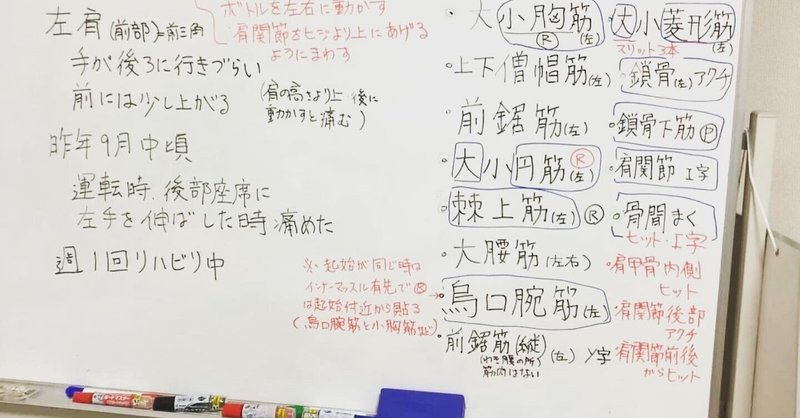 ボトルを左右に動かす
肩関節をヒジより上にあげる
ようにまわす
左肩(前部)=前三角
手が後ろに行きづらい
前には少し上がる
(肩の高さより上 後に
動かすと痛む)
昨年9月中頃
運転時、後部座席に
左手を伸ばした時痛めた
週1回リハビリ中
※起始が同じ時は
インナーマッスル有先でⓇ
は起始付近から貼る
(烏口腕筋と小胸筋など)
大小胸筋(左)
Ⓡ
・上下僧帽筋(左)
・前鋸筋(左)
・大小円筋(左)
Ⓡ
・棘上筋(左)Ⓡ
・大腰筋(左右)
・烏口腕筋(左)
・前鋸筋(縦)(左) Y字
(わき腹の所)
筋肉はない
・大小菱形筋(左)
スリット3本
・鎖骨(左)アクチ
・鎖骨下筋Ⓟ
・肩関節 I字
・骨間まく
ヒット・I字
・肩甲骨内側
ヒット
・肩関節後部
アクチ
・肩関節前後
がらヒット